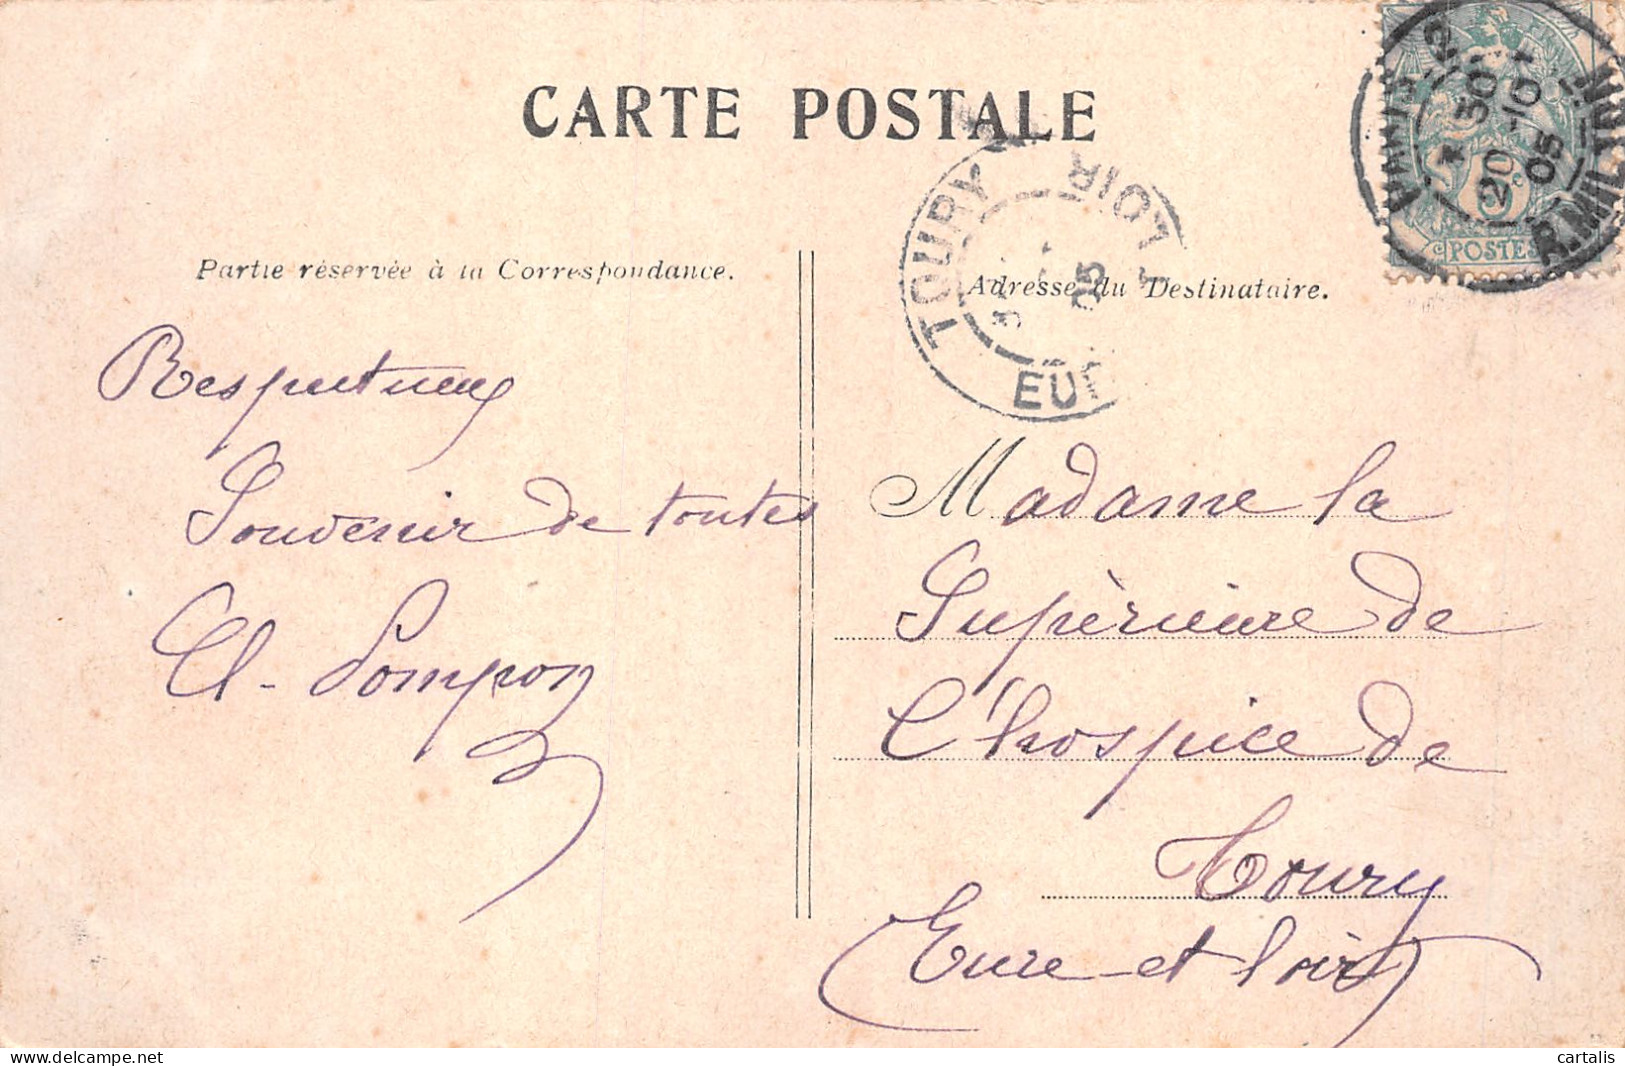 CARTE POSTALE
Partie réservée à la Correspondance.
Adresse du Destinataire.
Respectueux
Souvenir de toutes
Cl. Pompon
Madame la
Supérieure de
l'hospice de
Toury
Eure et Loir
TOURY
EURE
LOIR
05
PARIS
20 -10
05
R. MILTON
5c
POSTES
cartalis